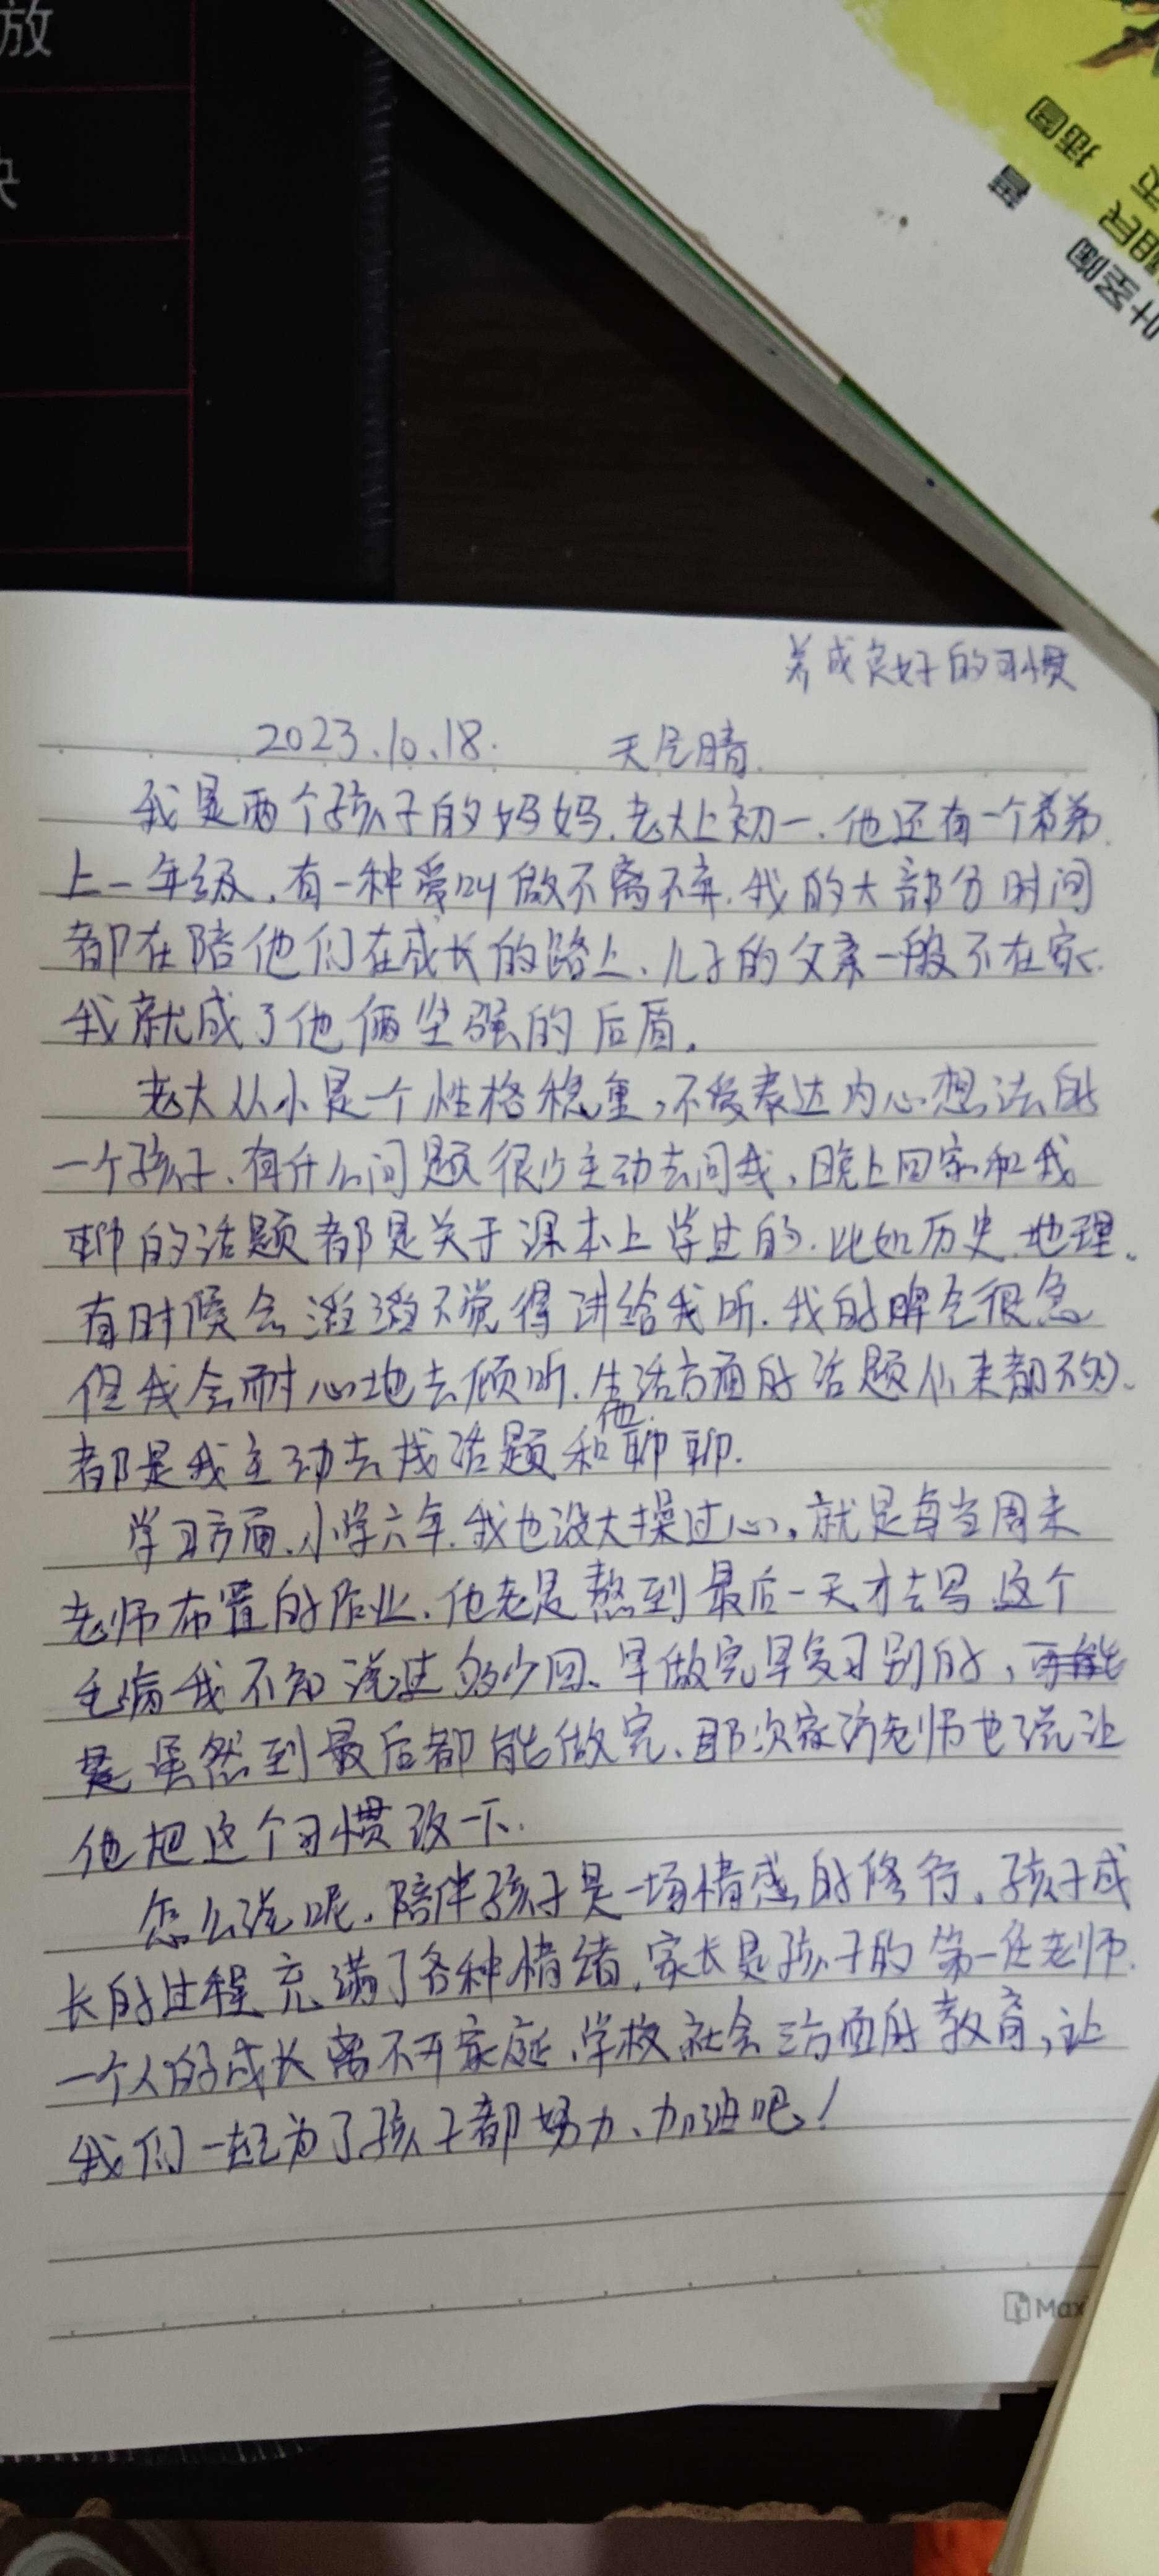 放
插图
著
叶圣陶
养成良好的习惯
2023.10.18. 天气晴.
我是两个孩子的妈妈.老大上初一.他还有一个弟弟.
上一年级,有一种爱叫做不离不弃.我的大部分时间
都在陪他们在成长的路上、儿子的父亲一般不在家.
我就成了他俩坚强的后盾.
老大从小是一个性格稳重,不爱表达内心想法的
一个孩子、有什么问题很少主动去问我,晚上回家和我
聊的话题都是关于课本上学过的.比如历史.地理.
有时候会滔滔不觉得讲给我听.我的脾气很急
但我会耐心地去倾听.生活方面的话题从来都不多、
都是我主动去找话题和他聊聊.
学习方面、小学六年.我也没大操过心,就是每当周末
老师布置的作业、他老是熬到最后一天才去写.这个
毛病我不知说过多少回、早做完早复习别的,
虽然到最后都能做完、那次家访老师也说让
他把这个习惯改一下.
怎么说呢.陪伴孩子是一场情感的修行、孩子成
长的过程充满了各种情绪,家长是孩子的第一任老师.
一个人的成长离不开家庭、学校社会三方面的教育,让
我们一起为了孩子都努力、加油吧!
Max